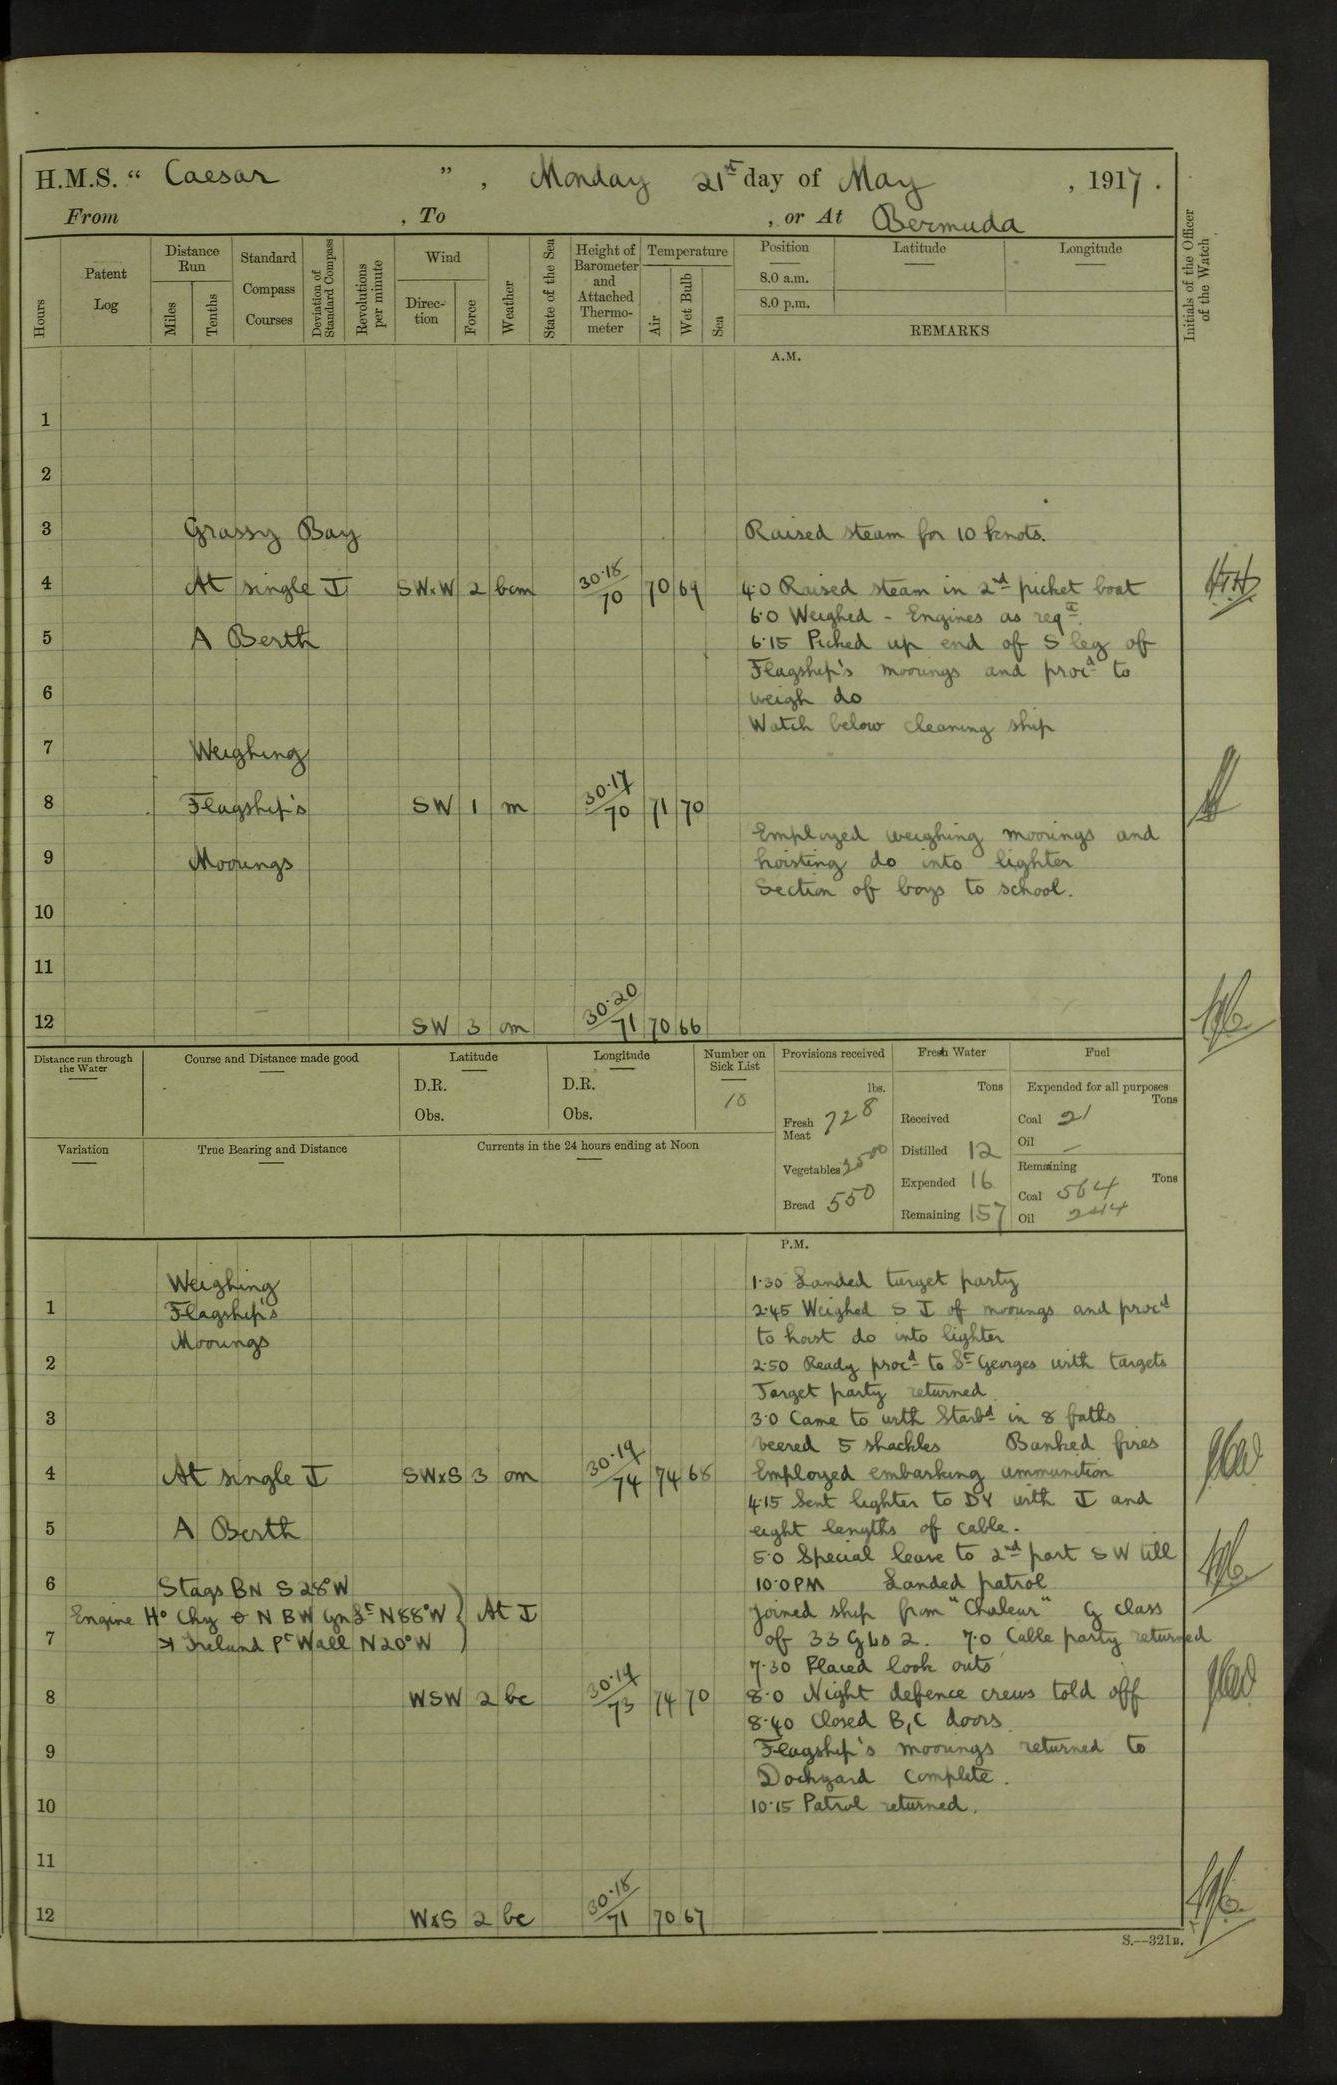 H.M.S. “ Caesar ” , Monday 21st day of May , 1917 .
From , To , or At Bermuda
Hours
Patent Log
Distance Run
Miles
Tenths
Standard Compass Courses
Deviation of Standard Compass
Revolutions per minute
Wind
Direc- tion
Force
Weather
State of the Sea
Height of Barometer and Attached Thermo- meter
Temperature
Air
Wet Bulb
Sea
Position
8.0 a.m.
8.0 p.m.
Latitude
Longitude
REMARKS
Initials of the Officer of the Watch
A.M.
1
2
3 Grassy Bay Raised steam for 10 knots.
4 At single ⚓ SWxW 2 bcm 30.18/70 70 69 4.0 Raised steam in 2nd picket boat
6.0 Weighed - Engines as reqd.
5 A Berth 6.15 Picked up end of S leg of
Flagship's moorings and procd to
6 weigh do
Watch below cleaning ship
7 Weighing
8 Flagship's SW 1 m 30.17/70 71 70
Employed weighing moorings and
9 Moorings hoisting do into lighter
Section of boys to school.
10
11
12 SW 3 om 30.20/71 70 66
Distance run through the Water
Course and Distance made good
Latitude
D.R.
Obs.
Longitude
D.R.
Obs.
Number on Sick List
18
Provisions received
lbs.
Fresh Meat 728
Vegetables 2500
Bread 550
Fresh Water
Tons
Received
Distilled 12
Expended 16
Remaining 157
Fuel
Expended for all purposes
Tons
Coal 21
Oil —
Remaining
Tons
Coal 564
Oil 244
Variation
True Bearing and Distance
Currents in the 24 hours ending at Noon
P.M.
Weighing 1.30 Landed target party
1 Flagship's 2.45 Weighed S ⚓ of moorings and procd
Moorings to hoist do into lighter
2 2.50 Ready procd to St Georges with targets
Target party returned
3 3.0 Came to with Starbd in 8 faths
veered 5 shackles Banked fires
4 At single ⚓ SWxS 3 om 30.19/74 74 68 Employed embarking ammunition
4.15 Sent lighter to DY with ⚓ and
5 A Berth eight lengths of cable.
5.0 Special leave to 2nd part SW till
6 Stags BN S28°W 10.0 PM Landed patrol
Engine Ho Chy N B W N88°W } At ⚓ joined ship from "Chaleur" G class
7 Ireland Pt Wall N20°W of 33 2. 7.0 Cable party returned
7.30 Placed look outs
8 WSW 2 bc 30.19/73 74 70 8.0 Night defence crews told off
8.40 Closed B, C doors.
9 Flagship's moorings returned to
Dockyard complete.
10 10.15 Patrol returned.
11
12 WxS 2 bc 30.18/71 70 67
S.—321B.